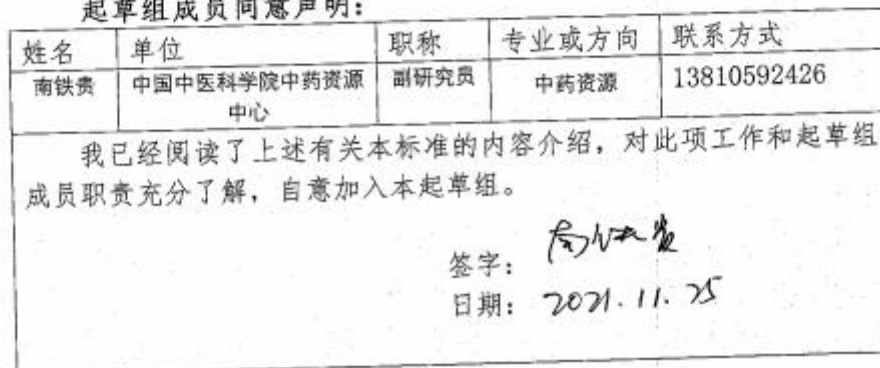 起草组成员同意声明：
姓名 单位 职称 专业或方向 联系方式
南铁贵 中国中医科学院中药资源 副研究员 中药资源 13810592426
中心
我已经阅读了上述有关本标准的内容介绍，对此项工作和起草组
成员职责充分了解，自意加入本起草组。
签字：南铁贵
日期：2021.11.25